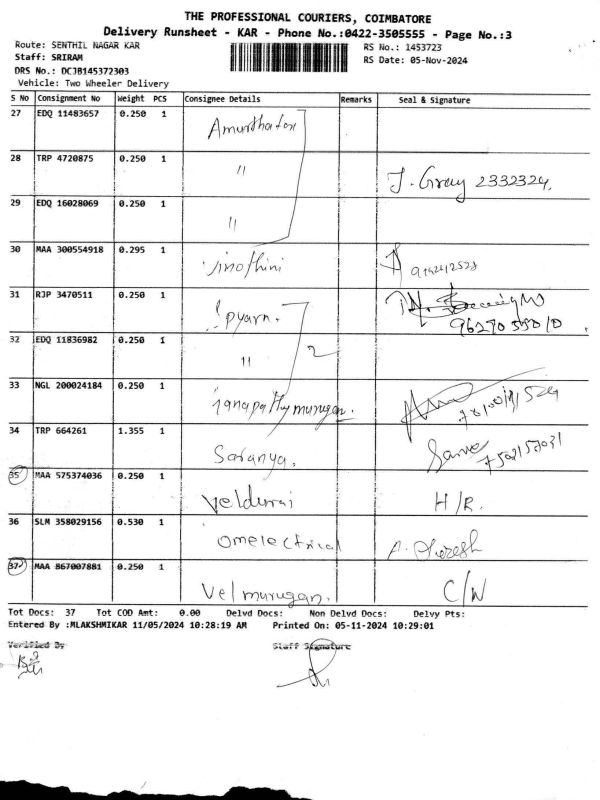 THE PROFESSIONAL COURIERS, COIMBATORE
Delivery Runsheet - KAR - Phone No.:0422-3505555 - Page No.:3
Route: SENTHIL NAGAR KAR
RS No.: 1453723
Staff: SRIRAM
RS Date: 05-Nov-2024
DRS No.: DCJB145372303
Vehicle: Two Wheeler Delivery
S No Consignment No Weight PCS Consignee Details Remarks Seal & Signature
27 EDQ 11483657 0.250 1
28 TRP 4720875 0.250 1 " J. Gray 2332324
29 EDQ 16028069 0.250 1 "
30 MAA 300554918 0.295 1 Vinothini
31 RJP 3470511 0.250 1
32 EDQ 11836982 0.250 1 " 2
33 NGL 200024184 0.250 1
34 TRP 664261 1.355 1 Saranya.
35 MAA 575374036 0.250 1 Veldurai H/R.
36 SLM 358029156 0.530 1 omelectrical
37 MAA 867007881 0.250 1 Velmurugan. C/W
Tot Docs: 37 Tot COD Amt: 0.00 Delvd Docs: Non Delvd Docs: Delvy Pts:
Entered By :MLAKSHMIKAR 11/05/2024 10:28:19 AM Printed On: 05-11-2024 10:29:01
Verified By Staff Signature